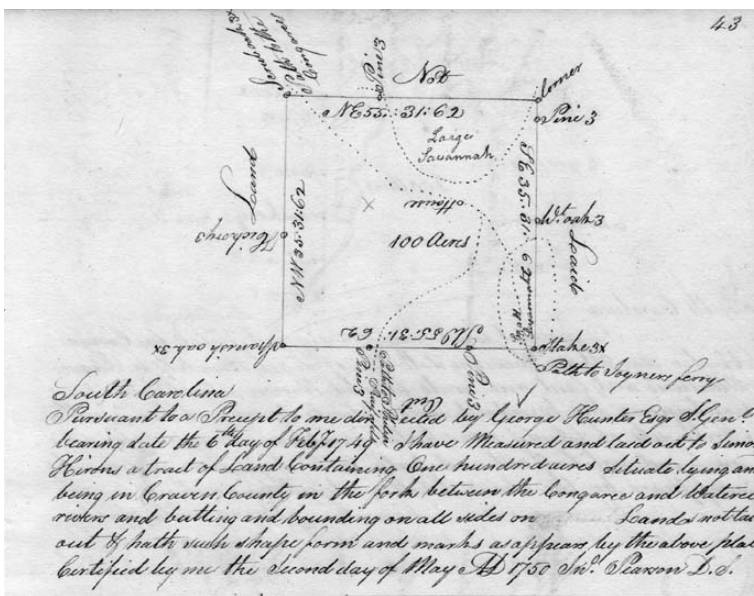 43
Path to the
Congarees
Pine 3
Not
Corner
NE 55. 31:62
Pine 3
Large
Savannah
SE 35. 31. 62
Land
House
Wt. oak 3
Hickory 3
NW 35. 31.62
100 Acres
Laid
Spanish oak 3x
Stake 3x
Pine 3
Pine 3
Path to Joyners ferry
Out
South Carolina
Pursuant to a Precept to me directed by George Hunter Esqr S. Genl.
bearing date the 6th day of Feby 1749 I have Measured and laid out to Simon
Hirons a tract of Land Containing One hundred acres Situate lying an
being in Craven County in the fork between the Congaree and Wateree
rivers and butting and bounding on all sides on Lands not lai
out & hath such shape form and marks as appears by the above plat
Certified by me the Second day of May AD 1750 Jno. Pearson D. S.